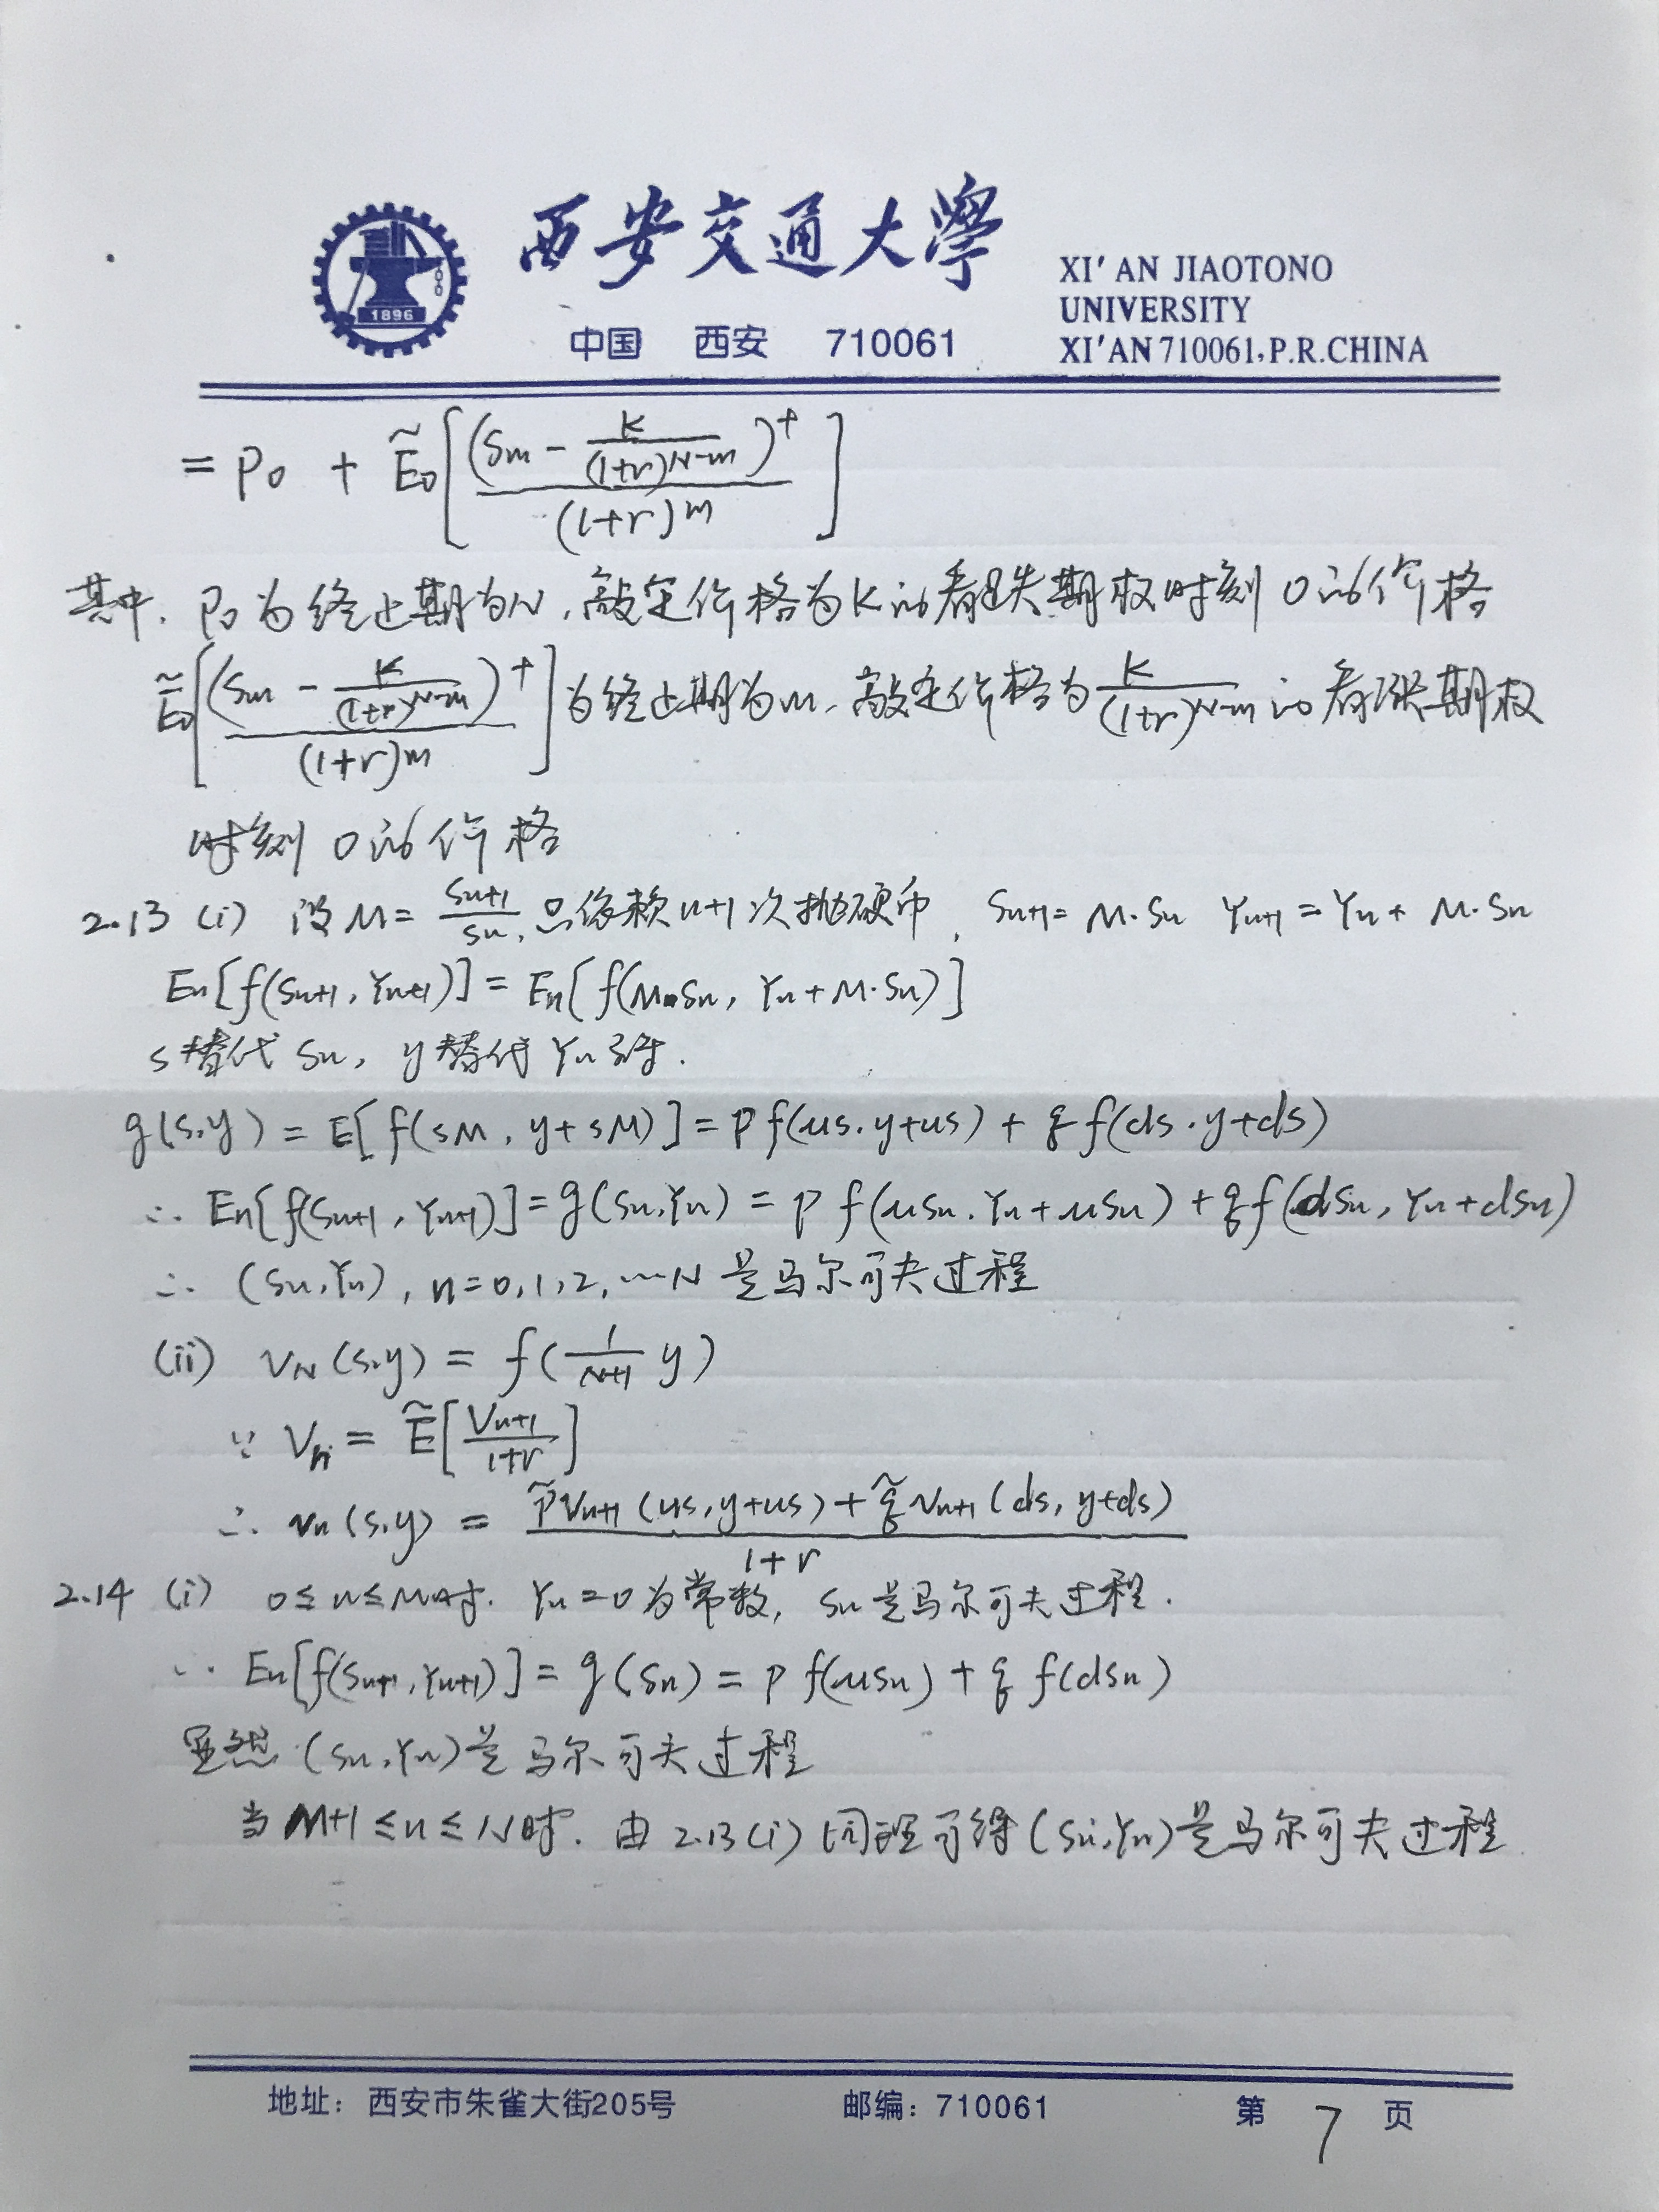 西安交通大學
中国 西安 710061
XI'AN JIAOTONO
UNIVERSITY
XI'AN 710061,P.R.CHINA
1896
= P₀ + Ẽ₀[(Sm - K/(1+r)^(N-m))⁺/(1+r)^m]
其中. P₀为终止期为N,敲定价格为K的看跌期权时刻0的价格
Ẽ₀[(Sm - K/(1+r)^(N-m))⁺/(1+r)^m]为终止期为m,敲定价格为K/(1+r)^(N-m)的看涨期权
时刻0的价格
2.13 (i) 设M = Sn+1/Sn,只依赖n+1次抛硬币, Sn+1 = M·Sn Yn+1 = Yn + M·Sn
En[f(Sn+1, Yn+1)] = En[f(M·Sn, Yn + M·Sn)]
s替代Sn, y替代Yn 得.
g(s,y) = E[f(sM, y+sM)] = p f(us, y+us) + q f(ds, y+ds)
∴ En[f(Sn+1, Yn+1)] = g(Sn,Yn) = p f(uSn, Yn+uSn) + q f(dSn, Yn+dSn)
∴ (Sn,Yn), n=0,1,2,…N 是马尔可夫过程
(ii) VN(s,y) = f(1/(N+1) y)
∵ Vn = Ẽ[Vn+1/(1+r)]
∴ vn(s,y) = (p̃Vn+1(us,y+us) + q̃Vn+1(ds,y+ds))/(1+r)
2.14 (i) 0≤n≤M时. Yn=0为常数, Sn是马尔可夫过程.
∴ En[f(Sn+1,Yn+1)] = g(Sn) = p f(uSn) + q f(dSn)
显然 (Sn,Yn)是马尔可夫过程
当M+1≤n≤N时. 由2.13(i)同理可得(Sn,Yn)是马尔可夫过程
地址：西安市朱雀大街205号 邮编：710061 第 7 页